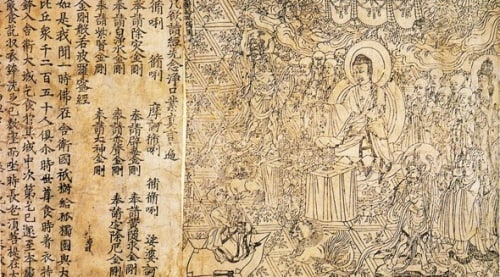 凡欲讀經先念淨口業真言一遍
脩唎 摩訶脩唎 脩脩唎 娑婆訶
奉請除灾金剛 奉請辟毒金剛 奉請黃隨求金剛
奉請白淨水金剛 奉請赤聲金剛 奉請定除厄金剛
奉請紫賢金剛 奉請大神金剛
金剛般若波羅蜜經
如是我聞一時佛在舍衛國祇樹給孤獨園與大
比丘衆千二百五十人俱尒時世尊食時著衣持
鉢入舍衛大城乞食於其城中次第乞已還至本處
飯食訖收衣鉢洗足已敷座而坐時長老須菩提在大